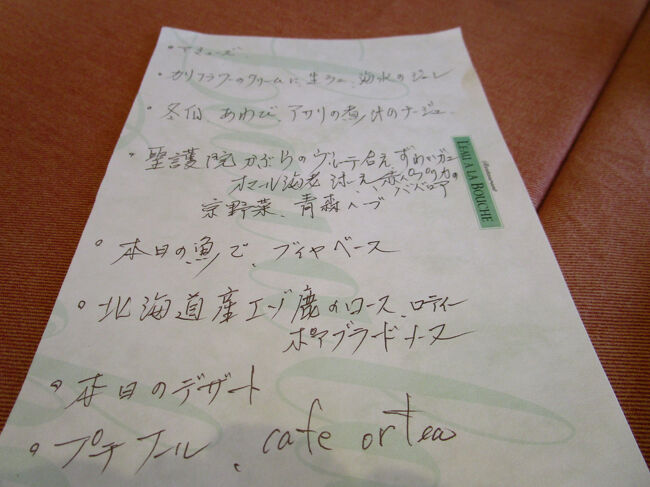 • アミューズ
• カリフラワーのクリームに、生ウニ、海水のジュレ
• 冬旬、あわび、アサリの煮汁のナージュ
• 聖護院かぶらのヴルーテ合え ずわいガニ
オマール海老添え、赤パプリカの
ババロア
京野菜、青森ハーブ
• 本日の魚で、ブイヤベース
• 北海道産エゾ鹿のロース、ロティー
ポアブラードソース
• 本日のデザート
• プチフール、cafe or tea
Restaurant
L'EAU À LA BOUCHE